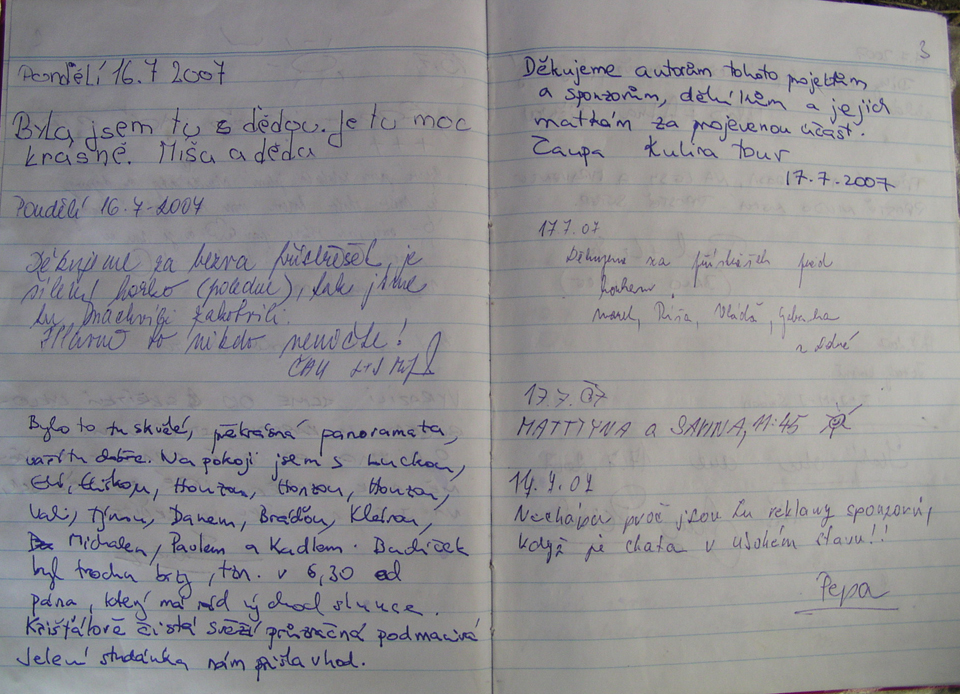 Pondělí 16.7 2007
Byla jsem tu s dědou. Je tu moc
krásně. Míša a děda
Pondělí 16.7-2007
Děkujeme za bezva přístřešek, je
šílený horko (poledne), tak jsme
tu
Hlavně to nikdo neničte!
ČAU
Bylo to tu skvělé, překrásná panoramata,
vaří tu dobře. Na pokoji jsem s Luckou,
Eliškou, Honzou, Honzou, Honzou,
Týnou, Danem, Bráďou, Klárou,
Michalem, Pavlem a Kadlem. Budíček
byl trochu brzy, tzn. v 6,30 od
pána, který má rád východ slunce.
Křišťálově čistá svěží průzračná podmanivá
Jelení studánka nám přišla vhod.
3
Děkujeme autorům tohoto projektům
a sponzorům, dělníkům a jejich
matkám za projevenou účast.
Čaupa Kulina tour
17.7.2007
17.7.07
Děkujeme za přístřešek před
horkem
Marek, Ríša, Vláďa,
17.7.07
MARTYNA a SANNA, 11:45
17.7.07
Nechápu proč jsou tu reklamy sponzorů,
když je chata v ubohém stavu!!
Pepa